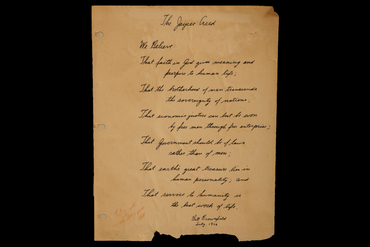 The Jaycee Creed
We Believe
That faith in God gives meaning and
purpose to human life;
That the brotherhood of man transcends
the sovereignty of nations;
That economic justice can best be won
by free men through free enterprise;
That Government should be of laws
rather than of men;
That earth's great treasure lies in
human personality; and
That service to humanity is
the best work of life.
Bill Brownfield
July